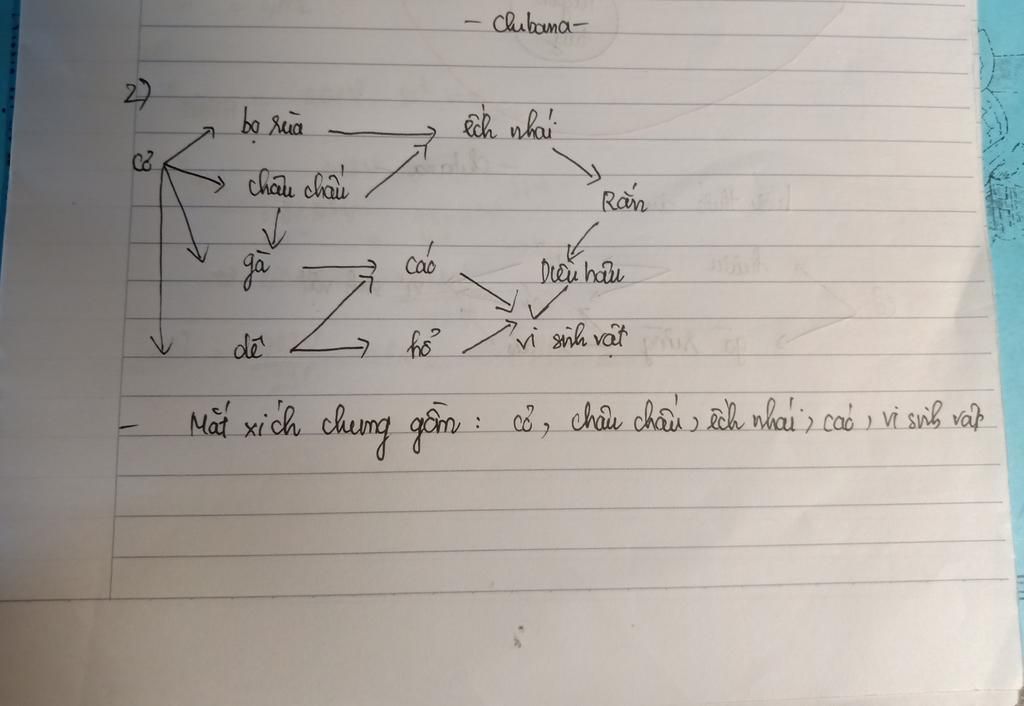 - Chibama -
2)
bọ rùa ếch nhái
cỏ châu chấu Rắn
gà cáo Diều hâu
dê hổ vi sinh vật
- Mắt xích chung gồm: cỏ, châu chấu, ếch nhái, cáo, vi sinh vật